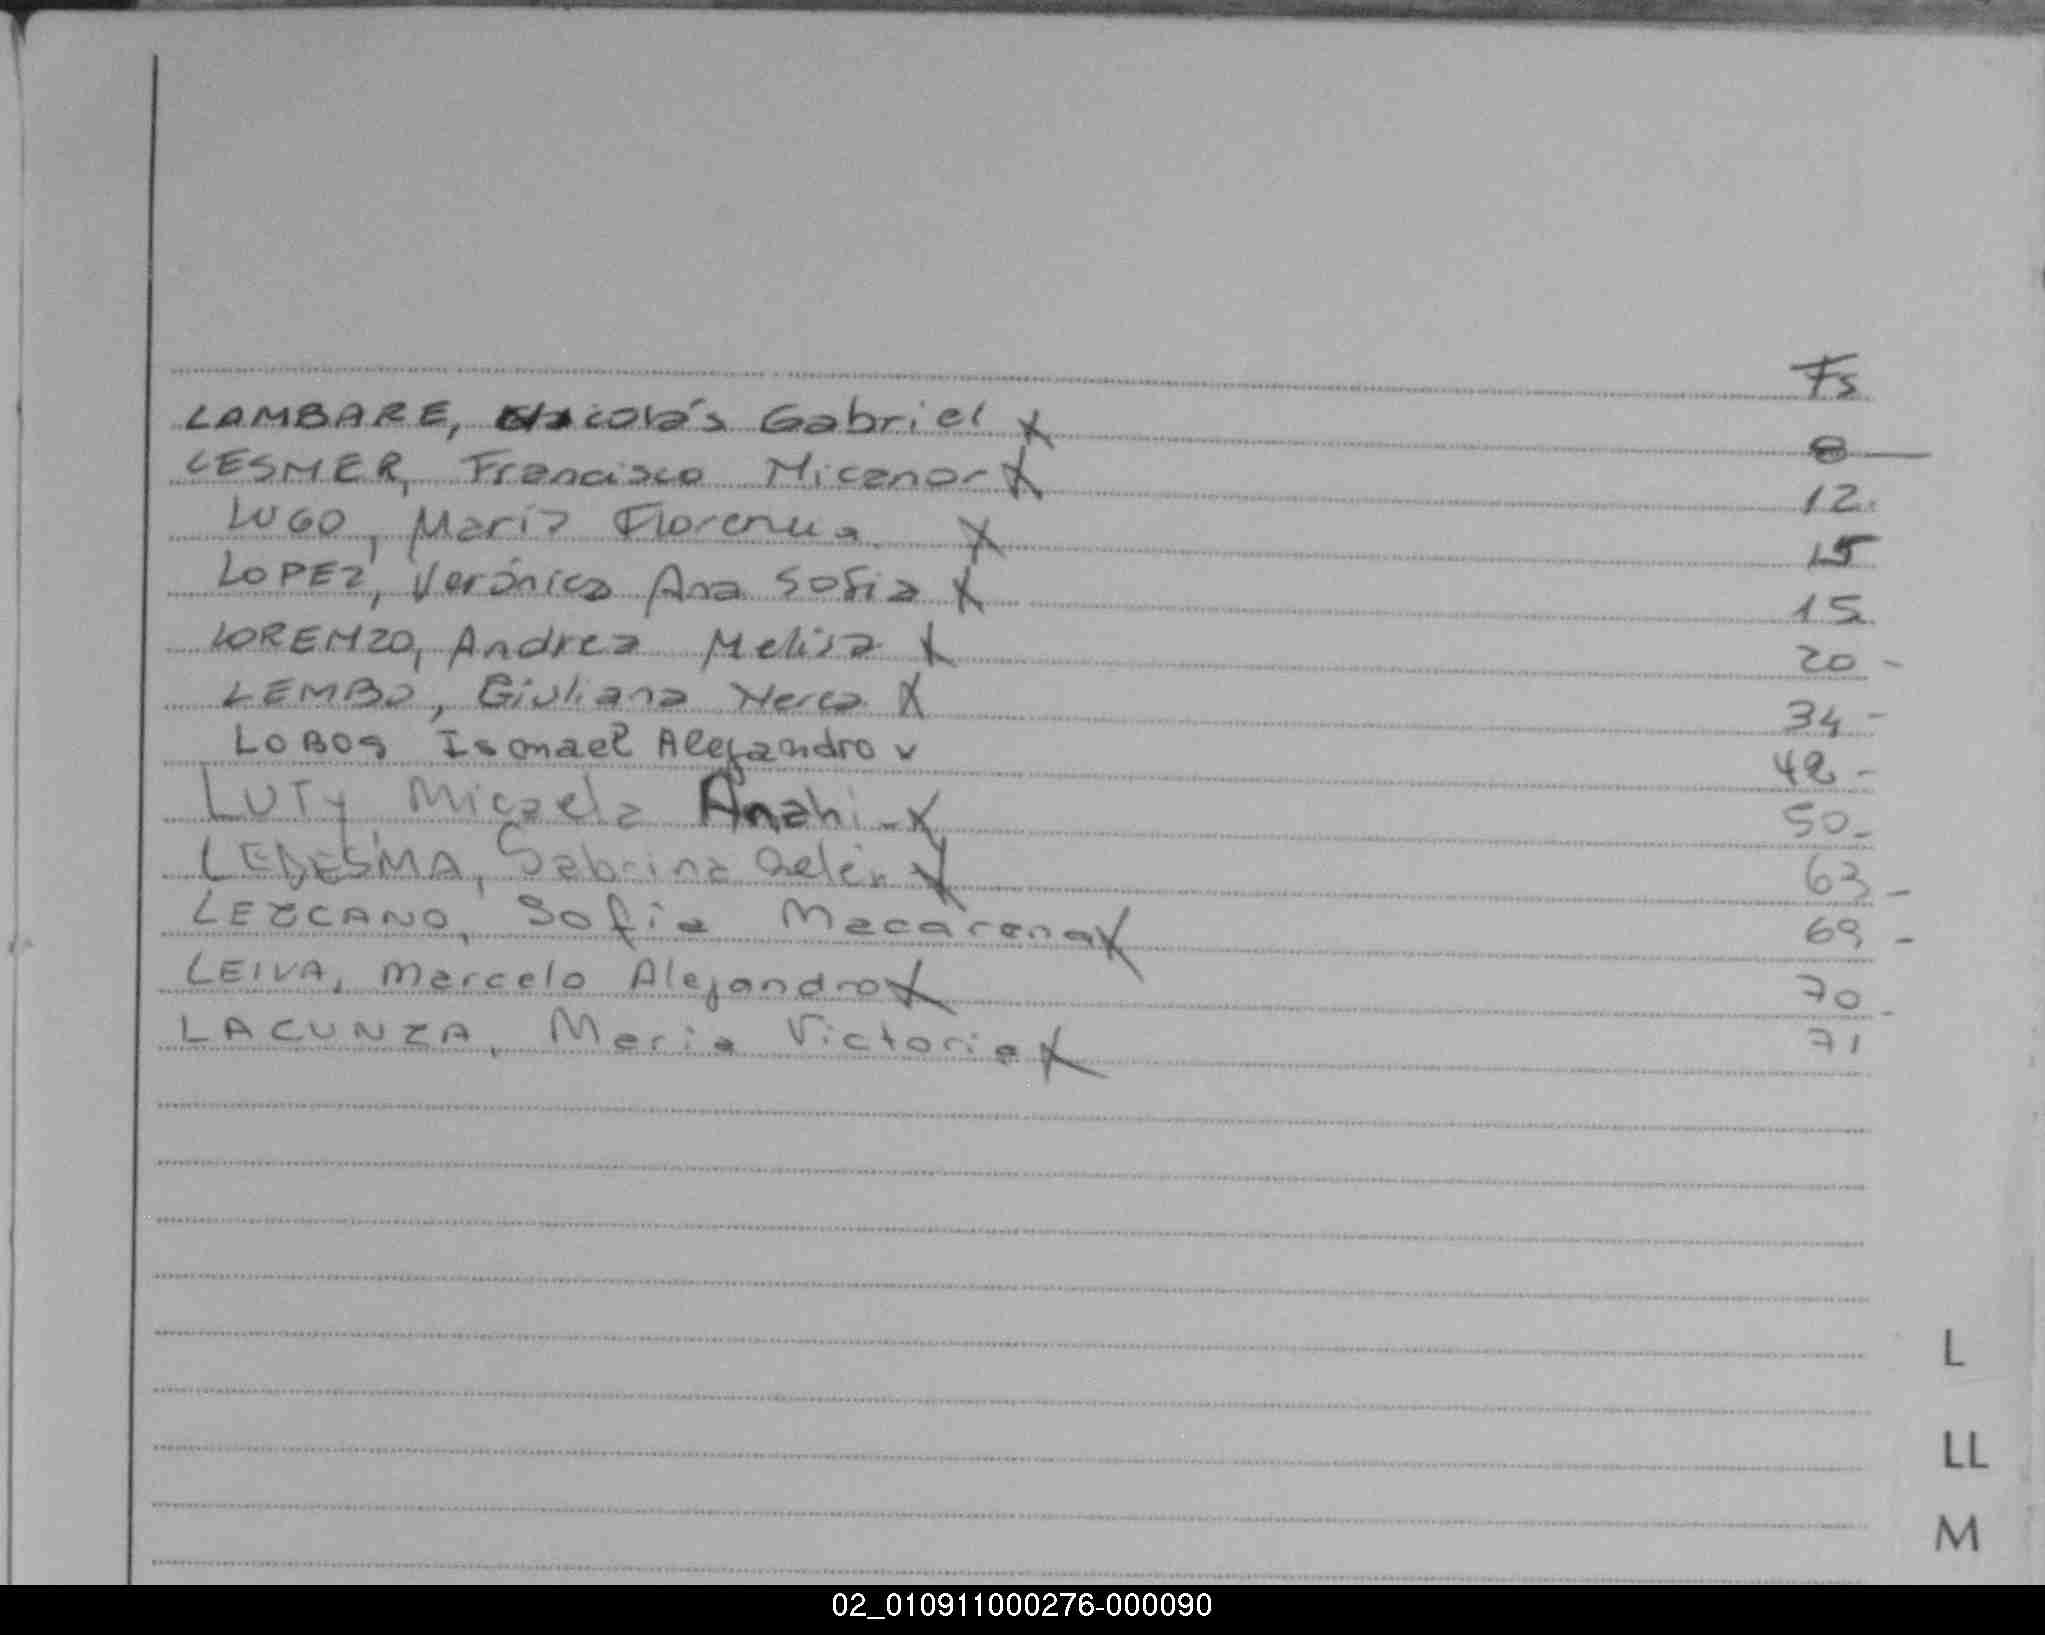 Fs
LAMBARE, Nicolás Gabriel X 8
LESMER, Francisco Nicanor X 12
LUGO, María Florencia X 15
LOPEZ, Verónica Ana Sofia X 15
LORENZO, Andrea Melisa X 20 -
LEMBO, Giuliana Nerea X 34 -
LOBOS Ismael Alejandro v 42 -
LUTY Micaela Anahi - X 50 -
LEDESMA, Sabrina Belén X 63 -
LEZCANO, Sofia Macarena X 69 -
LEIVA, Marcelo Alejandro X 70 -
LACUNZA, Maria Victoria X 71
L
LL
M
02_010911000276-000090